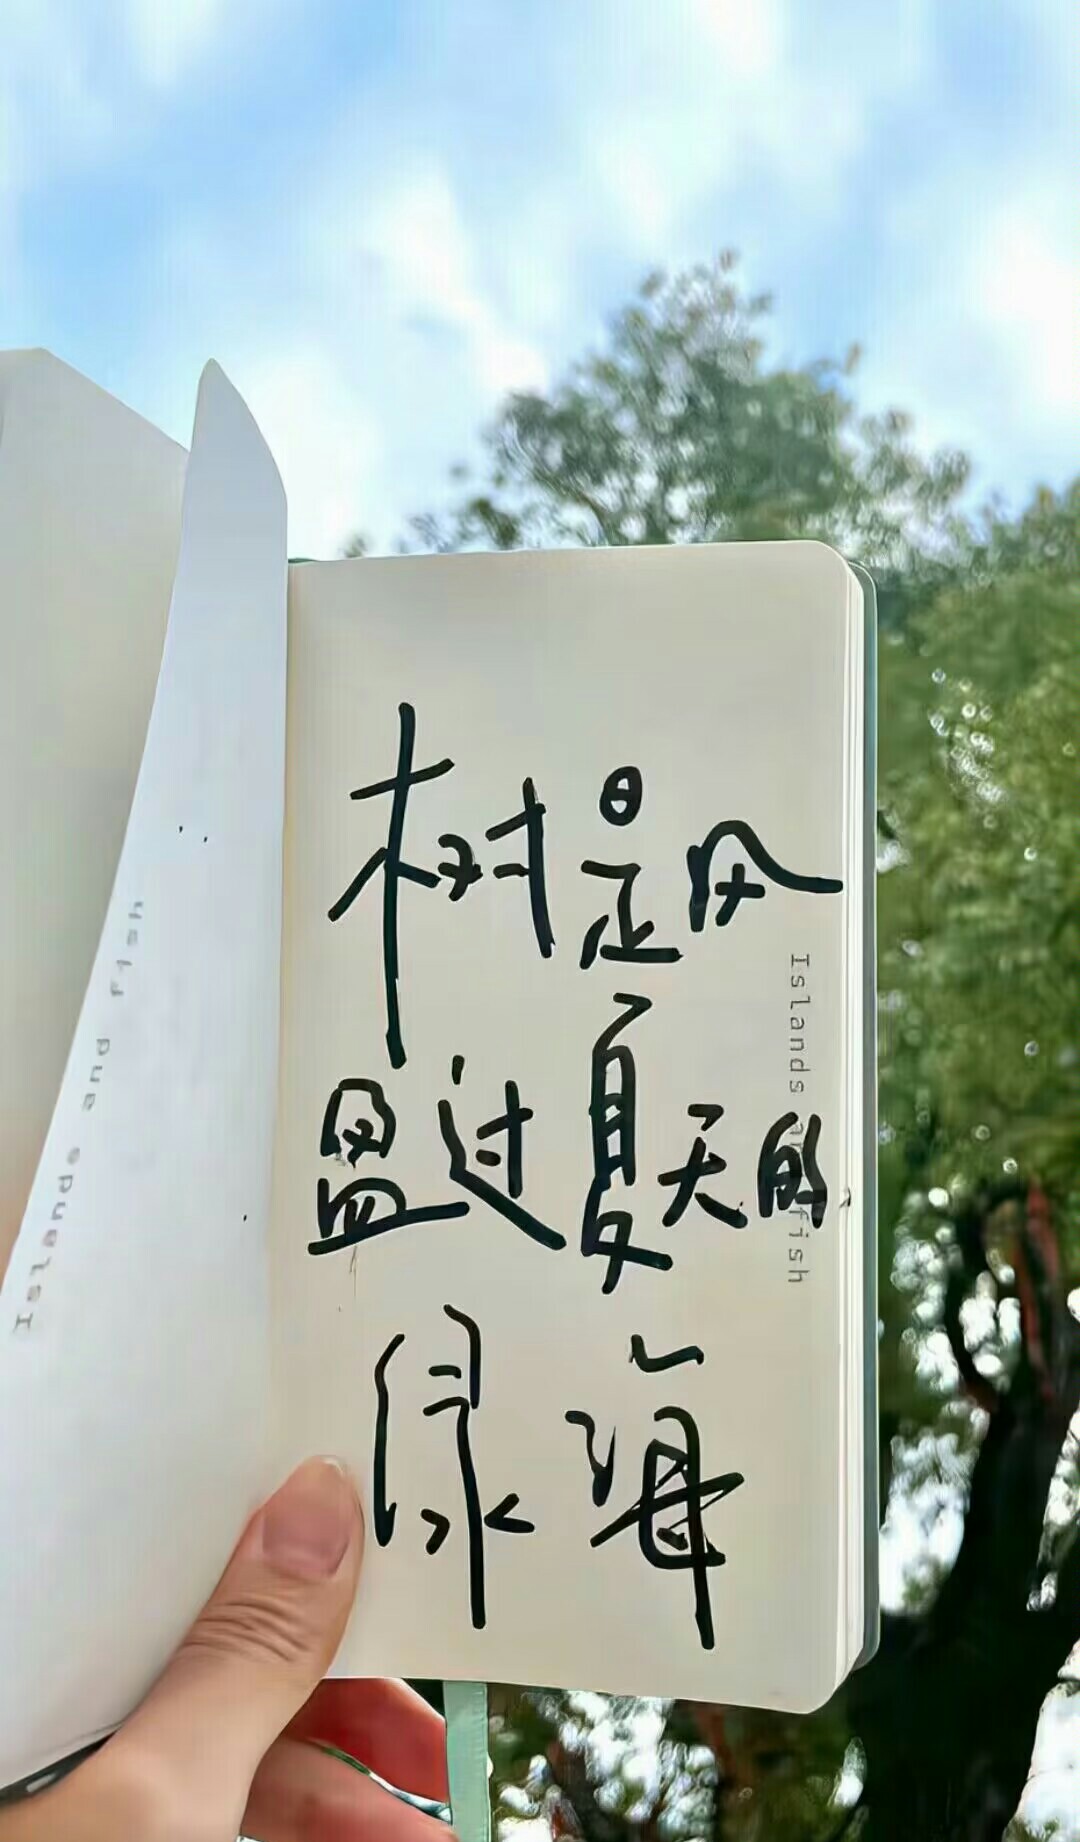 树是风
盈过夏天的
绿海
Islands and fish
Islands and fish